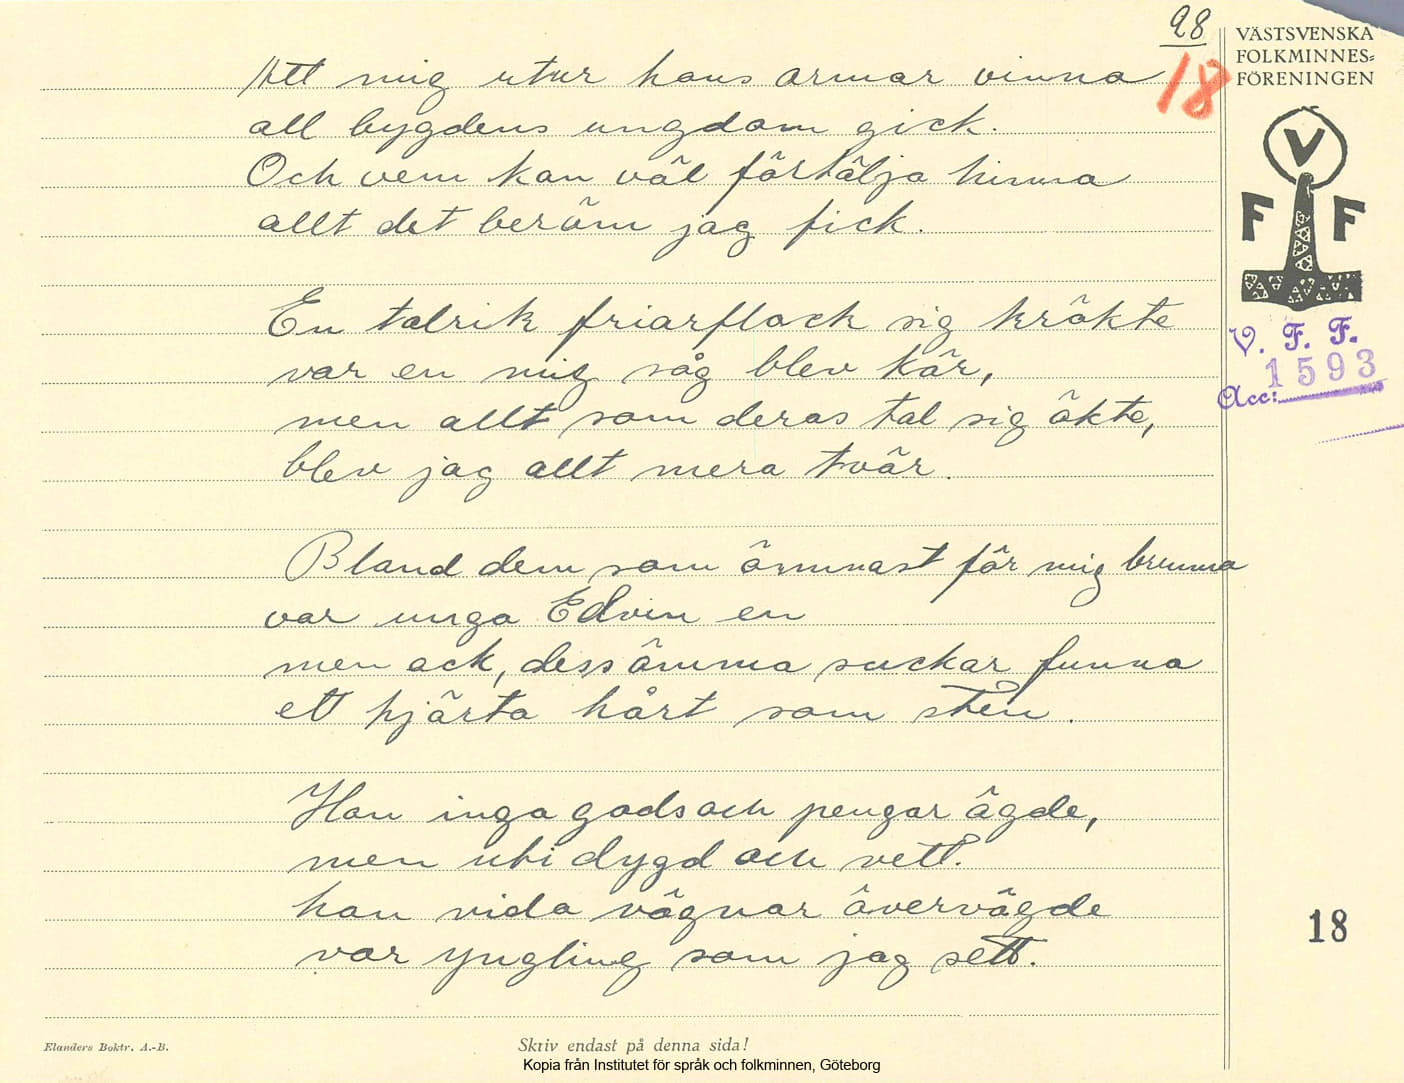 28
18
VÄSTSVENSKA
FOLKMINNES=
FÖRENINGEN
V
F F
V. F. F.
1593
Acc:
Att mig utur hans armar vinna
all bygdens ungdom gick.
Och vem kan väl förtälja hinna
allt det beröm jag fick.
En talrik friarflock sig krökte
var en mig såg blev kär,
men allt som deras tal sig ökte,
blev jag allt mera tvär.
Bland dem som ömmast för mig brunno
var unga Edvin en
men ack, dess ömma suckar funno
ett hjärta hårt som sten.
Han inga gods och pengar ägde,
men uti dygd och vett.
han vida vägnar övervägde
var yngling som jag sett.
18
Elanders Boktr. A.-B.
Skriv endast på denna sida!
Kopia från Institutet för språk och folkminnen, Göteborg